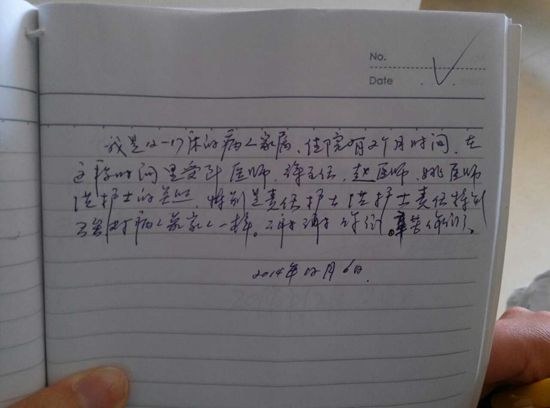 No.
Date
我是12-17床的病人家属,住院有2个月时间,在
这段时间里受到医师、徐主任、赵医师、姚医师
洪护士的关照,特别是责任护士洪护士责任特别
对病人象家人一样。谢谢你们。辛苦你们了。
2014年12月6日.